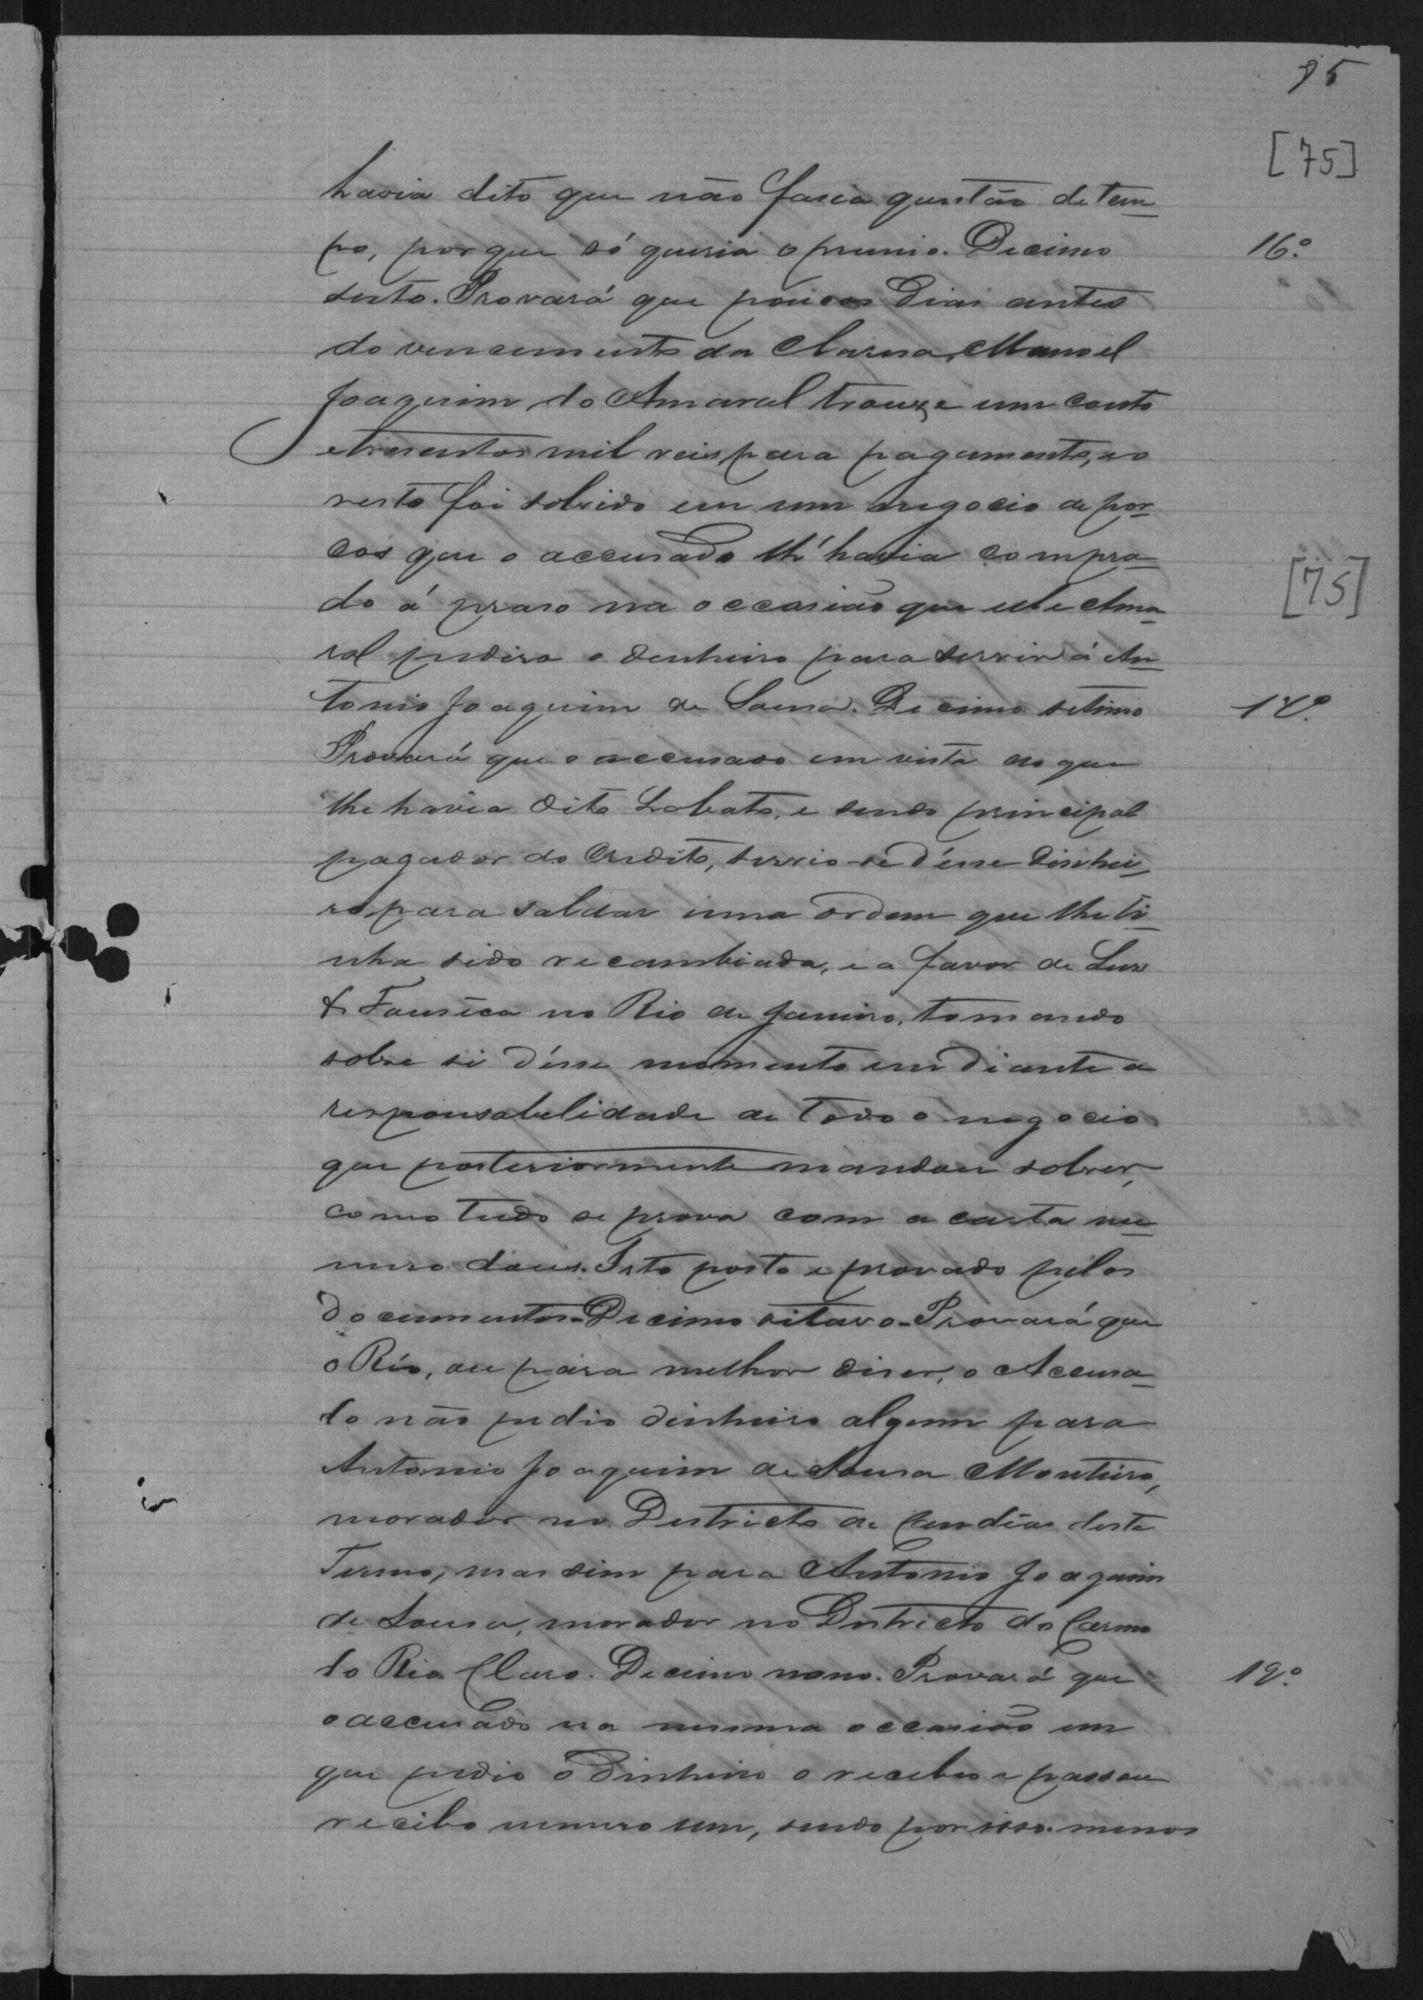 95
[75]
havia dito que não fasia questão de tem-
po, porque só queria o premio. Decimo
16º
sexto. Provará que poucos dias antes
do vencimento da Clausa, Manoel
Joaquim do Amaral trouxe um conto
e tresentos mil reis para pagamento, e o
resto foi solvido em um negocio de por-
cos que o accusado lh'havia compra-
do á praso na occasião que elle Ama-
[75]
ral pedira o denheiro para servir á An-
tonio Joaquim de Sousa. Decimo setimo
17º
Provará que o accusado em vista do que
lhe havia dito Lobato, e sendo principal
pagador do credito, servio-se d'esse dinhei-
ro para saldar uma ordem que lhe ti-
nha sido recambiada, e a favor de Luz
& Fonseca no Rio de Janeiro, tomando
sobre si d'esse momento em diante a
responsabelidade de todo o negocio
que posteriormente mandou solver,
como tudo se prova com a carta nu-
mero dous. Isto posto e provado pelos
documentos. Decimo oitavo. Provará que
o Réo, ou para melhor diser, o Accusa-
do não pedio dinheiro algum para
Antonio Joaquim de Sousa Monteiro,
morador no Destricto de deste
Termo, mas sim para Antonio Joaquim
de Sousa, morador no Districto do Carmo
do Rio Claro. Decimo nono. Provará que
19º
o accusado na mesma occasião em
que pedio o dinheiro o recebeo e passou
recibo numero um, sendo por isso menos